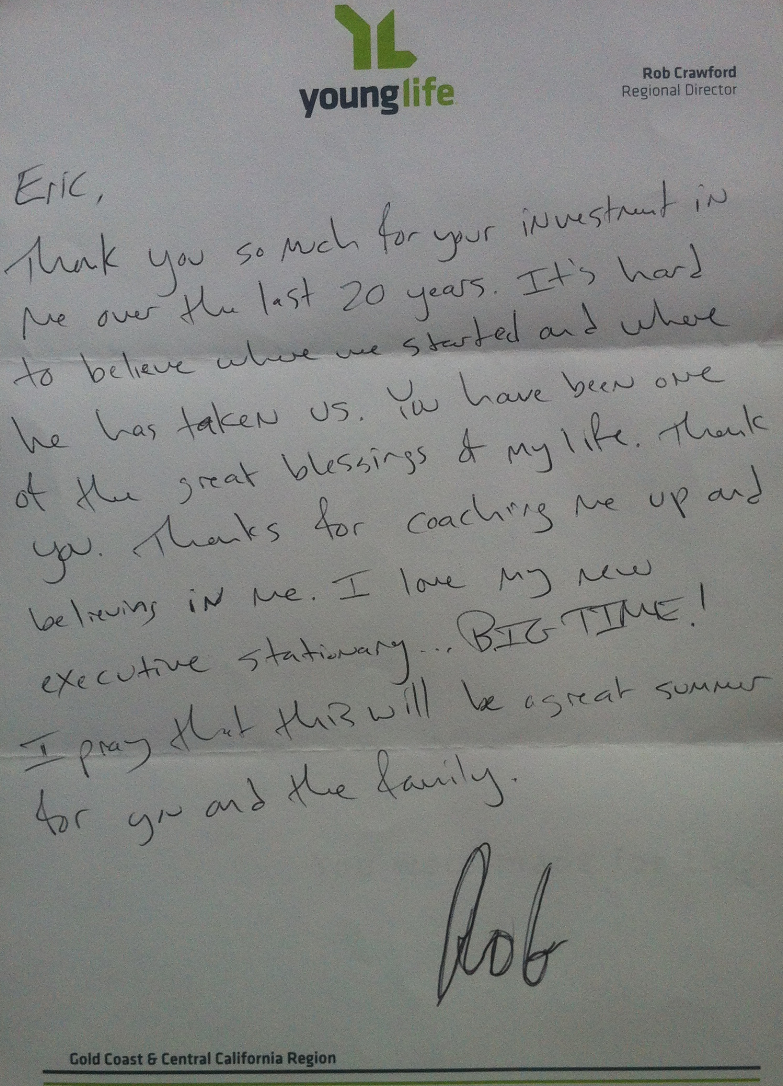 younglife
Rob Crawford
Regional Director
Eric,
Thank you so much for your investment in
me over the last 20 years. It's hard
to believe where we started and where
he has taken us. You have been one
of the great blessings of my life. Thank
you. Thanks for coaching me up and
believing in me. I love my new
executive stationary... BIG TIME!
I pray that this will be a great summer
for you and the family.
Rob
Gold Coast & Central California Region